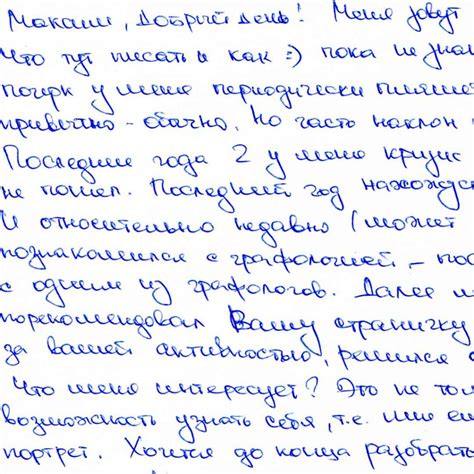 Максим, Добрый день! Меня зовут
Что тут писать и как :) пока не знаю
почерк у меня периодически пляшет
привычно - обычно. Но часть наклон
Последние года 2 у меня кризис
не пошел. Последний год нахожус
И относительно недавно (может
познакомился с графологией, - пос
с одним из графологов. Далее м
порекомендовал Вашу страничку
за вашей активностью, решился
Что меня интересует? Это не тол
возможность узнать себя, т.е. мне
портрет. Хочется до конца разобрать